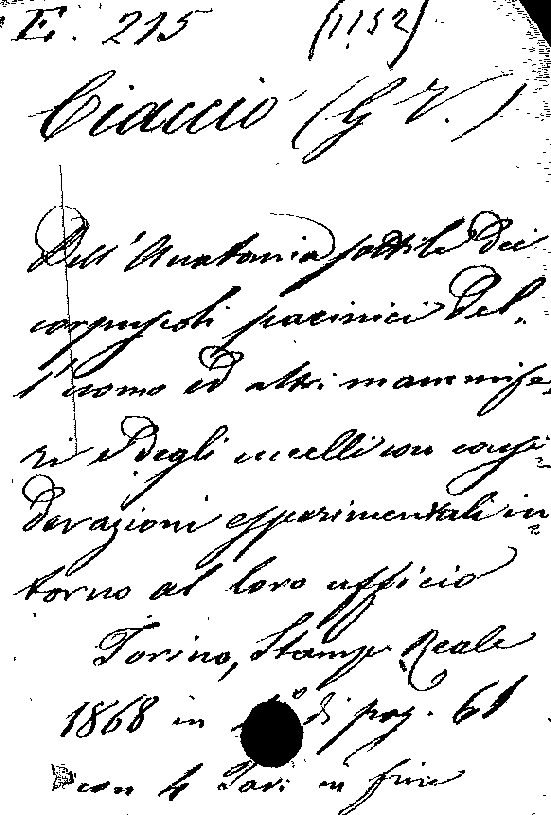 E. 215 (1152)
Ciaccio (G V.)
Dell'Anatomia sottile dei
corpuscoli pacinici del-
l'uomo ed altri mammife-
ri e degli uccelli con consi-
derazioni esperimentali in-
torno al loro uffizio
Torino, Stamp. Reale
1868 in di pag. 61
con 4 Tav. in fine